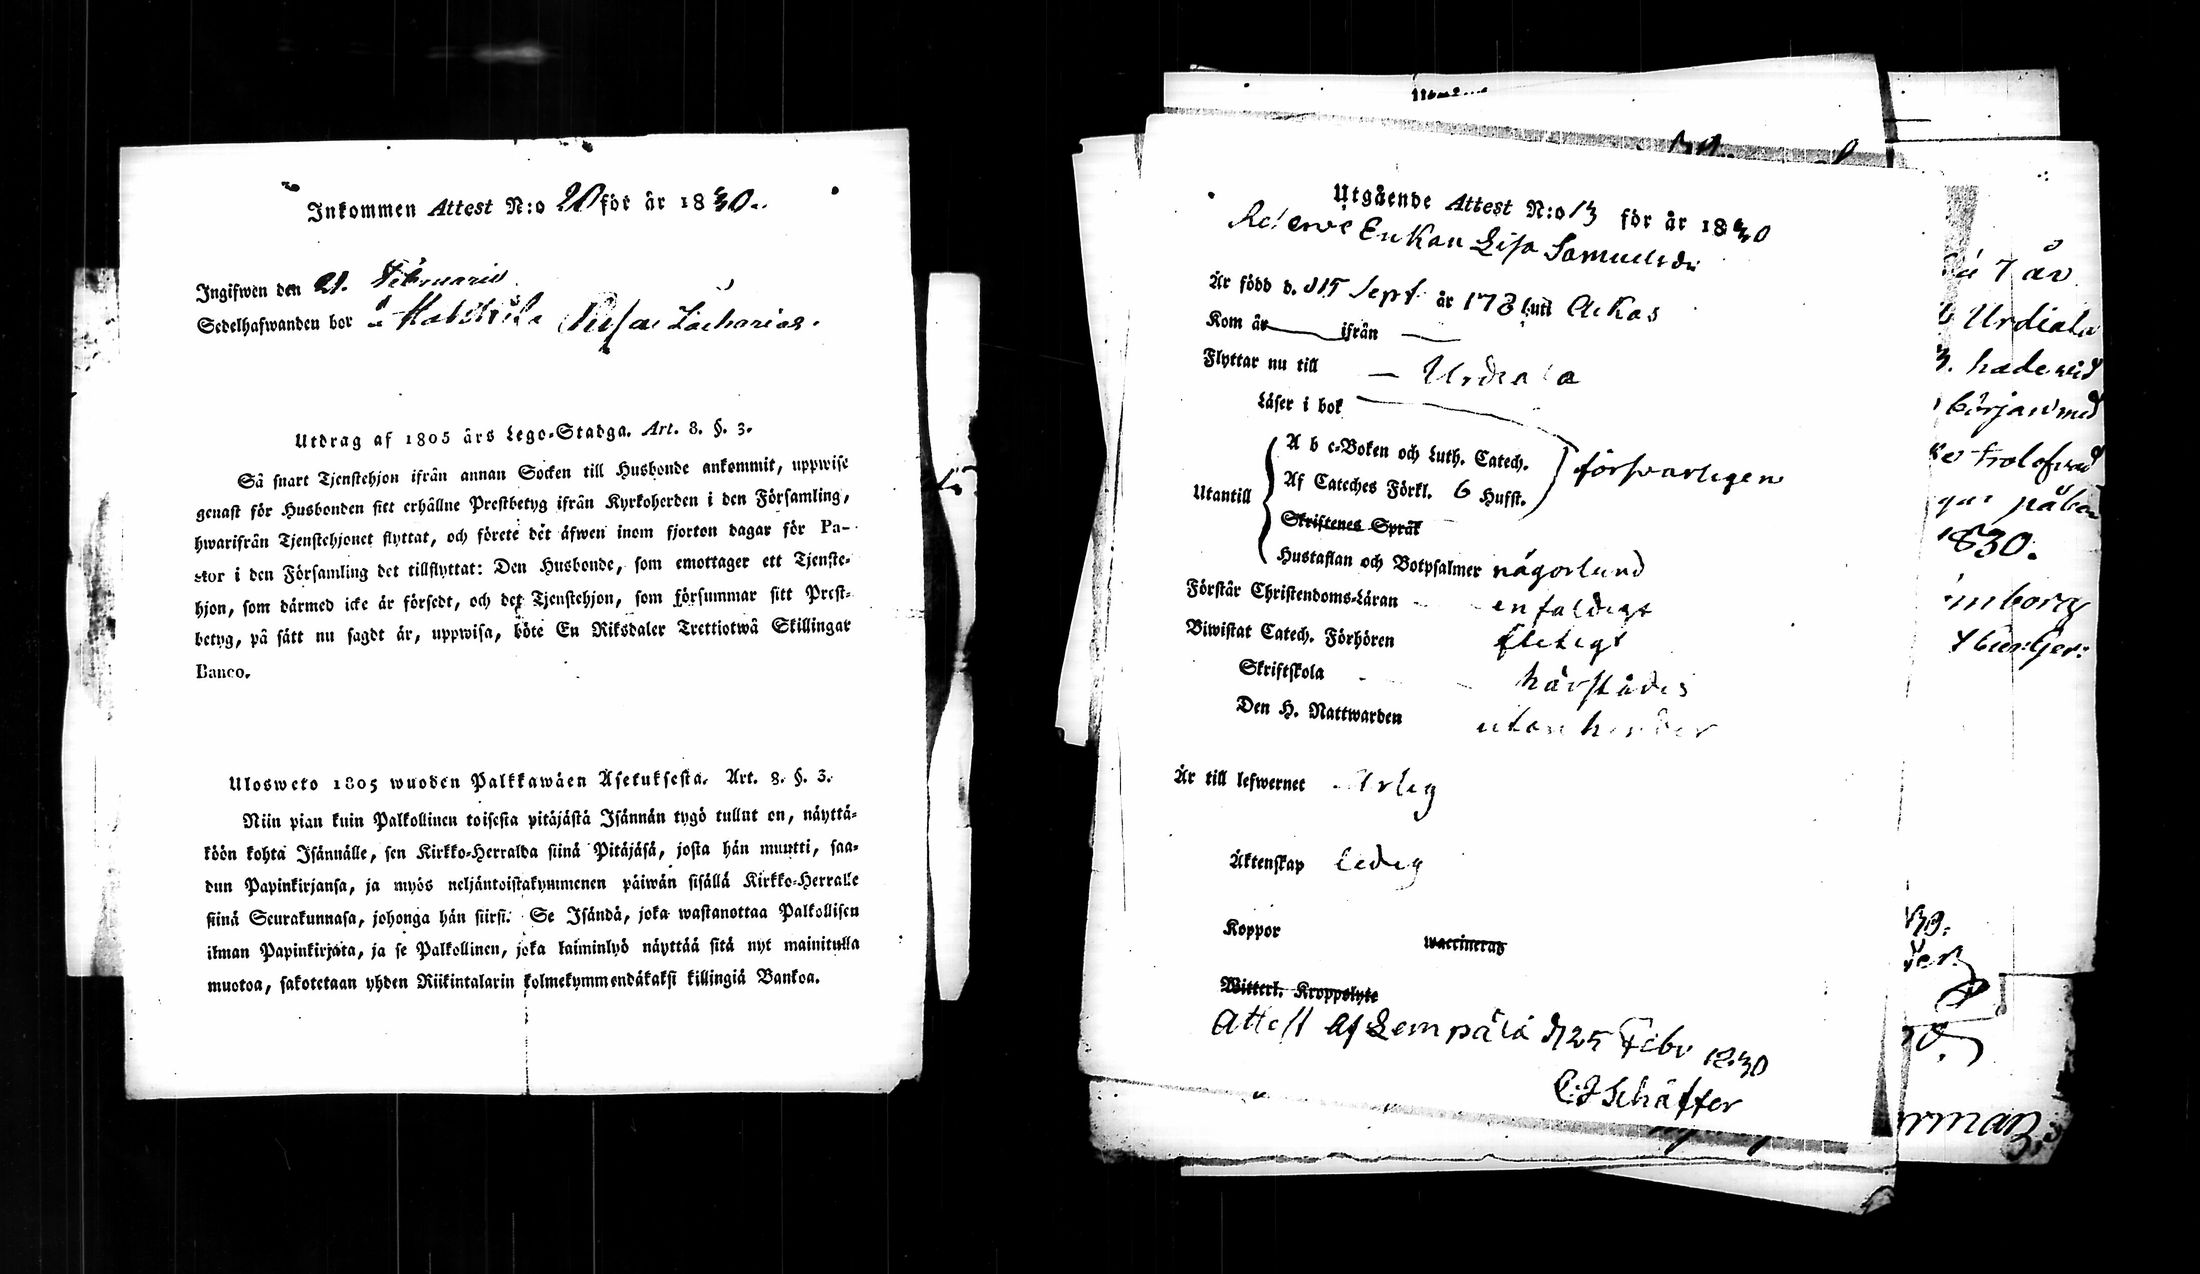 Inkommen Attest N:o 20 för år 1830.
Ingifwen den 21. Februarii
Sedelhafwanden bor Zacharias.
Utdrag af 1805 års Lego-Stadga. Art. 8. §. 3.
Så snart Tjenstehjon ifrån annan Socken till Husbonde ankommit, uppwise
genast för Husbonden sitt erhållne Prestbetyg ifrån Kyrkoherden i den Församling,
hwarifrån Tjenstehjonet flyttat, och förete det äfwen inom fjorton dagar för Pa-
stor i den Församling det tillflyttat: Den Husbonde, som emottager ett Tjenste-
hjon, som därmed icke är försedt, och det Tjenstehjon, som försummar sitt Prest-
betyg, på sätt nu sagdt är, uppwisa, böte En Riksdaler Trettiotwå Skillingar
Banco.
Ulosweto 1805 wuoden Palkkawäen Asetuksesta. Art. 8. §. 3.
Niin pian kuin Palkollinen toisesta pitäjästä Isännän tygö tullut on, näyttä-
köön kohta Isännälle, sen Kirkko-Herralda siinä Pitäjäsä, josta hän muutti, saa-
dun Papinkirjansa, ja myös neljäntoistakymmenen päiwän sisällä Kirkko-Herralle
siinä Seurakunnasa, johonga hän siirsi. Se Isändä, joka wastanottaa Palkollisen
ilman Papinkirjata, ja se Palkollinen, joka laiminlyö näyttää sitä nyt mainitulla
muotoa, sakotetaan yhden Riikintalarin kolmekymmendäkaksi killingiä Bankoa.
Utgående Attest N:o 13 för år 1830
Enkan Lisa Samuelsdr
Är född d. 15 Sept år 178 uti Ackas
Kom år ifrån
Flyttar nu till Urdiala
Läser i bok
Utantill
A b c-Boken och Luth. Catech.
Af Cateches Förkl. 6 Hufst.
försvarligen
Skriftenes Språk
Hustaflan och Botpsalmer någorlund
Förstår Christendoms-Läran enfaldigt
Biwistat Catech. Förhören flitigt
Skriftskola härstädes
Den H. Nattwarden utan hinder
Är till lefwernet Ärlig
Äktenskap ledig
Koppor waccineras
Witterl. Kroppslyte
Attest af Lempälä d 25 Febr 1830
C:J Schäffer
7 år
Urdiala
börjar med
1830.